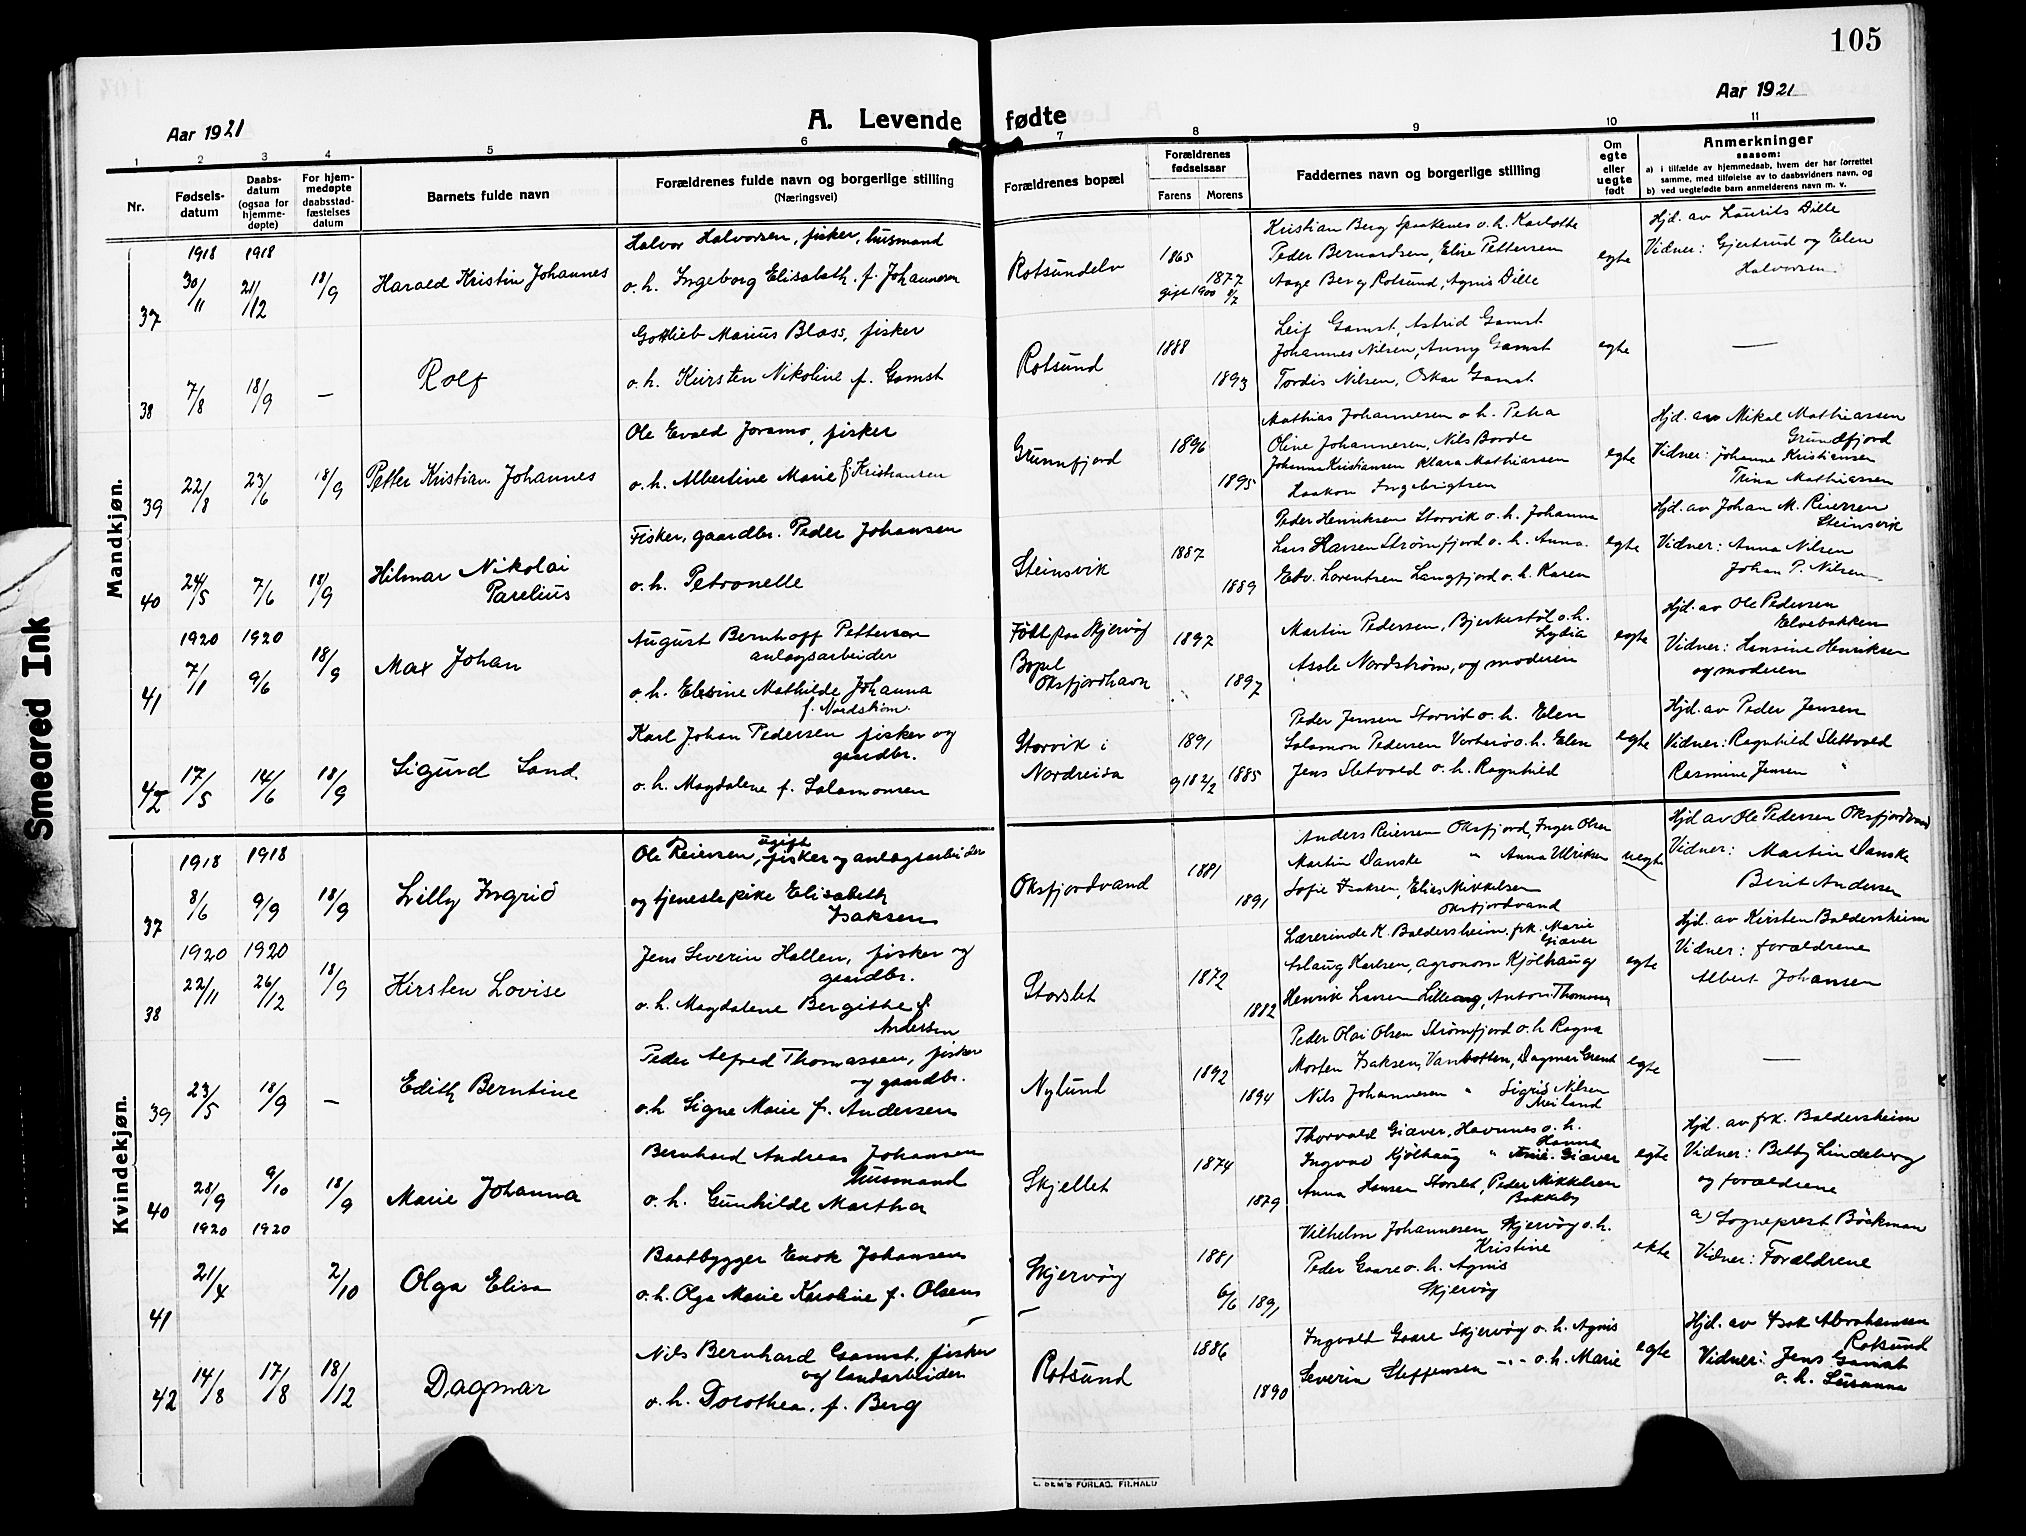 105
Aar 1921
A. Levende
fødte
Aar 1921
1 2 3 4 5 6 7 8 9 10 11
Nr.
Fødsels-
datum
Daabs-
datum
(ogsaa for
hjemme-
døpte)
For hjem-
medøpte
daabsstad-
fæstelses
datum
Barnets fulde navn
Forældrenes fulde navn og borgerlige stilling
(Næringsvei)
Forældrenes bopæl
Forældrenes
fødselsaar
Farens Morens
Faddernes navn og borgerlige stilling
Om
egte
eller
uegte
født
Anmerkninger
saasom:
a) i tilfælde av hjemmedaab, hvem der har forrettet
samme, med tilføielse av to daabsvidners navn, og
b) ved uegtefødte barn anmelderens navn m. v.
Smeared Ink
Mandkjøn.
37
1918 1918
30/11 21/12 18/9
Harald Kristin Johannes
Halvor Halvorsen, fisker, husmand
o. h. Ingeborg Elisabeth f. Johannesen
Rotsundelv
1865
1877
gift 1900
Kristian Berg Spaakenes o. h. Karlotte
Peder Bernardsen, Elise Pettersen
Aage Berg Rotsund, Agnis Dille
egte
Hjd. av Laurits Dille
Vidner: Gjertrud og Elen
Halvorsen
38
7/8 18/9 —
Rolf
Gottlieb Marius Blass, fisker
o. h. Kirsten Nikoline f. Gamst
Rotsund
1888
1893
Leif Gamst, Astrid Gamst
Johannes Nilsen, Anny Gamst
Tordis Nilsen, Oskar Gamst
egte
—
39
22/8 23/6 18/9
Petter Kristian Johannes
Ole Evald Joramo, fisker
o. h. Albertine Marie f. Kristiansen
Grunnfjord
1896
1895
Mathias Johannesen o h. Petra
Oline Johannesen, Nils Borde
Johanna Kristiansen Klara Mathiassen
Haakon Ingebrigtsen
egte
Hjd. av Mikal Mathiassen
Grundfjord
Vidner: Johanne Kristiansen
Trina Mathiassen
40
24/5 7/6 18/9
Hilmar Nikolai
Parelius
Fisker, gaardbr. Peder Johansen
o. h. Petronelle
Steinsvik
1887
1889
Peder Henriksen Storvik o. h. Johanna
Lars Hansen Strømfjord o. h. Anna.
Edv. Lorentsen Langfjord o. h. Karen
egte
Hjd. av Johan M. Reiersen
Steinsvik
Vidner: Anna Nilsen
Johan P. Nilsen
41
1920 1920
7/1 9/6 18/9
Max Johan
August Bernhoff Pettersen
anlægsarbeider
o. h. Elesine Mathilde Johanna
f. Nordstrøm.
Født paa Skjervøy
Bopel
Oksfjordhavn
1897
1897
Martin Pedersen, Bjerkestøl o. h.
Lydia
Assle Nordstrøm, og moderen
egte
Hjd. av Ole Pedersen
Elvebakken
Vidner: Hansine Henriksen
og moderen
42
17/5 14/6 18/9
Sigurd Sand
Karl Johan Pedersen fisker og
gaardbr.
o. h. Magdalene f. Salamonsen
Storvik i
Nordreisa
1891
1885
Peder Jensen Storvik o. h. Elen
Salamon Pedersen Vorterø o. h. Elen
Jens Sletvold o. h. Ragnhild
egte
Hjd. av Peder Jensen
Vidner: Ragnhild Slettvold
Rasmine Jensen "
Kvindekjøn.
37
1918 1918
8/6 9/9 18/9
Lilly Ingrid
Ole Reiersen, ugift fisker og anlægsarbeider
og tjenestepike Elisabeth
Isaksen
Oksfjordvand
1881
1891
Anders Reiersen Oksfjord, Inger Olsen
Martin Danske " Anna Ulriksen
Sofie Isaksen, Elias Mikkelsen
Oksfjordvand
uegte
Hjd av Ole Pedersen Oksfjordvand
Vidner: Martin Danske
Berit Andersen
38
1920 1920
22/11 26/12 18/9
Kirsten Lovise
Jens Severin Hallen, fisker og
gaardbr.
o. h. Magdalene Bergitte f.
Andersen
Storslet
1872
1882
Lærerinde K. Baldersheim, frk. Marie
Giæver
Aslaug Karlsen, agronom Kjølhaug
Henrik Larsen Lilleeng, Anton Thomassen
egte
Hjd. av Kirsten Baldersheim
Vidner: forældrene
Albert Johansen
39
23/5 18/9 —
Edith Berntine
Peder Alfred Thomassen, fisker
og gaardbr.
o. h Signe Marie f. Andersen
Nylund
1892
1894
Peder Olai Olsen Strømfjord o. h Ragna
Morten Isaksen, Vanbotten, Dagmar Grent
Nils Johannesen " Sigrid Nilsen
Meiland
egte
—
40
28/9 9/10 18/9
1920 1920
Marie Johanna
Bernhard Andreas Johansen
husmand
o. h. Gunhilde Martha
Skjellet
1874
1879
Thorvald Giæver, Havnnes o. h.
Hanna
Ingvald Kjølhaug " Giæver
Anna Hansen Storslet, Peder Mikkelsen
Bakkeby
egte
Hjd. av frk. Baldersheim
Vidner: Betty Lindeberg
og forældrene
41
21/4 2/10
Olga Elisa
Baatbygger Enok Johansen
o. h. Olga Marie Karoline f. Olsen
Skjervøy
1881
6/6 1891
Vilhelm Johannesen Skjervøy o. h.
Kristine
Peder Gaare o. h. Agnis
Skjervøy
ekte
a) Sogneprest Böckman
Vidner: Forældrene
42
14/8 17/8 18/12
Dagmar
Nils Bernhard Gamst, fisker
og landarbeider
o. h. Dorothea, f. Berg
Rotsund
1886
1890
Ingvald Gaare Skjervøy o. h. Agnis
Severin Steffensen -"- o. h. Marie
egte
Hjd. av Isak Abrahamsen
Rotsund
Vidner: Jens Gamst
o. h. Susanna
E. SEM'S FORLAG, FR.HALD